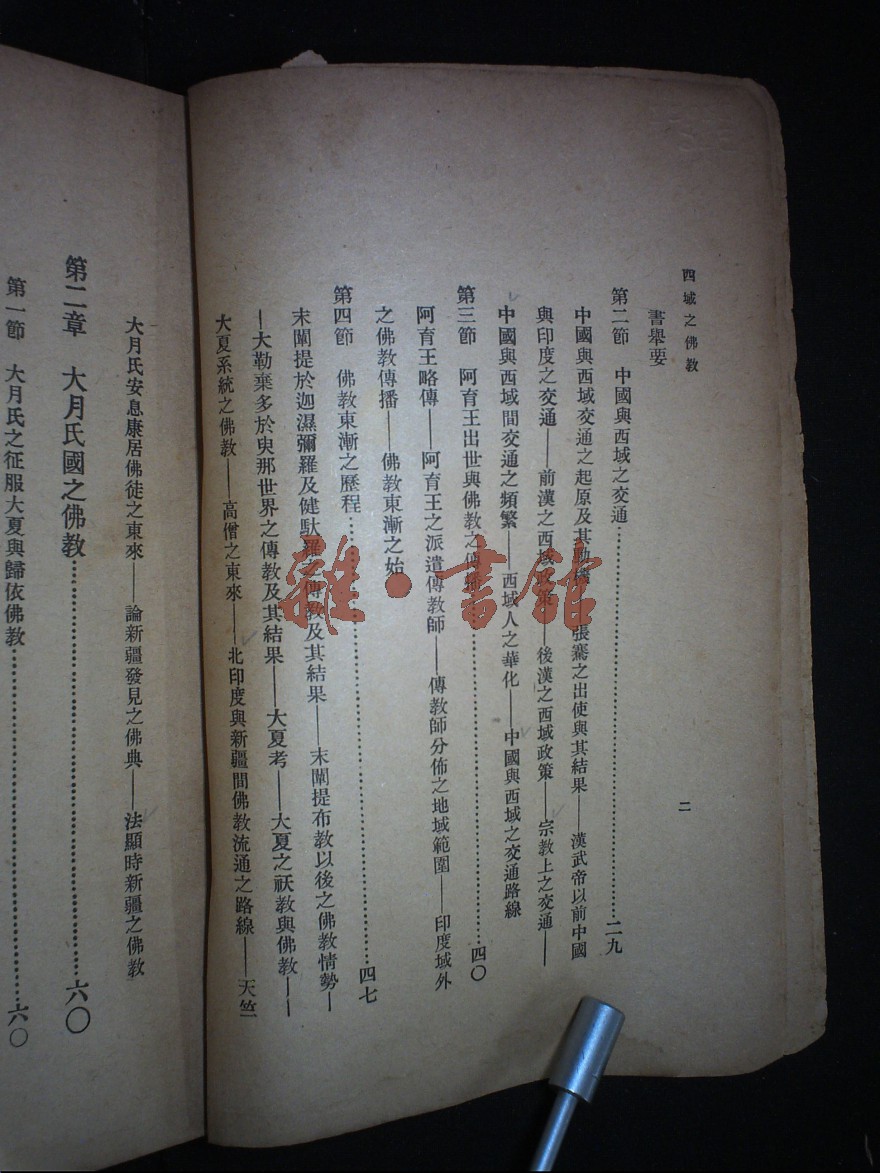 西域之佛教
二
書舉要
第二節 中國與西域之交通⋯⋯二九
中國與西域交通之起原及其動機——張騫之出使與其結果——漢武帝以前中國
與印度之交通——前漢之西域政策——後漢之西域政策——宗教上之交通——
中國與西域間交通之頻繁——西域人之華化——中國與西域之交通路線
第三節 阿育王出世與佛教之傳播⋯⋯四〇
阿育王略傳——阿育王之派遣傳教師——傳教師分佈之地域範圍——印度域外
之佛教傳播——佛教東漸之始
第四節 佛教東漸之歷程⋯⋯四七
末闡提於迦濕彌羅及健馱羅之傳教及其結果——末闡提布教以後之佛教情勢—
—大勒棄多於臾那世界之傳教及其結果——大夏考——大夏之祆教與佛教——
大夏系統之佛教——高僧之東來——北印度與新疆間佛教流通之路線——天竺
大月氏安息康居佛徒之東來——論新疆發見之佛典——法顯時新疆之佛教
第二章 大月氏國之佛教⋯⋯六〇
第一節 大月氏之征服大夏與歸依佛教⋯⋯六〇
雜·書館